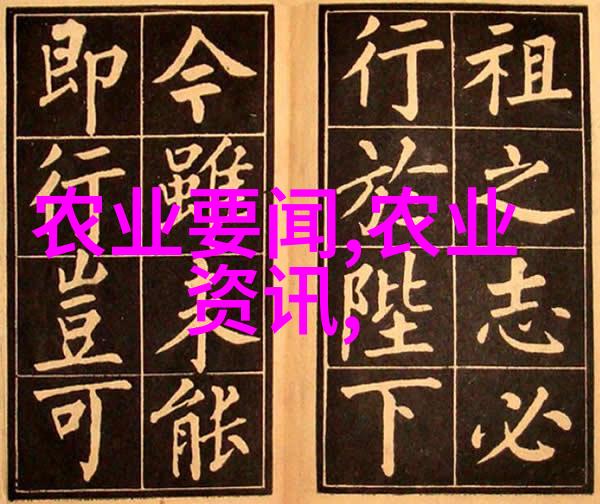 祖之志必
行於陛下
今雖未能
即行豈可
农业要闻,农业
资讯,